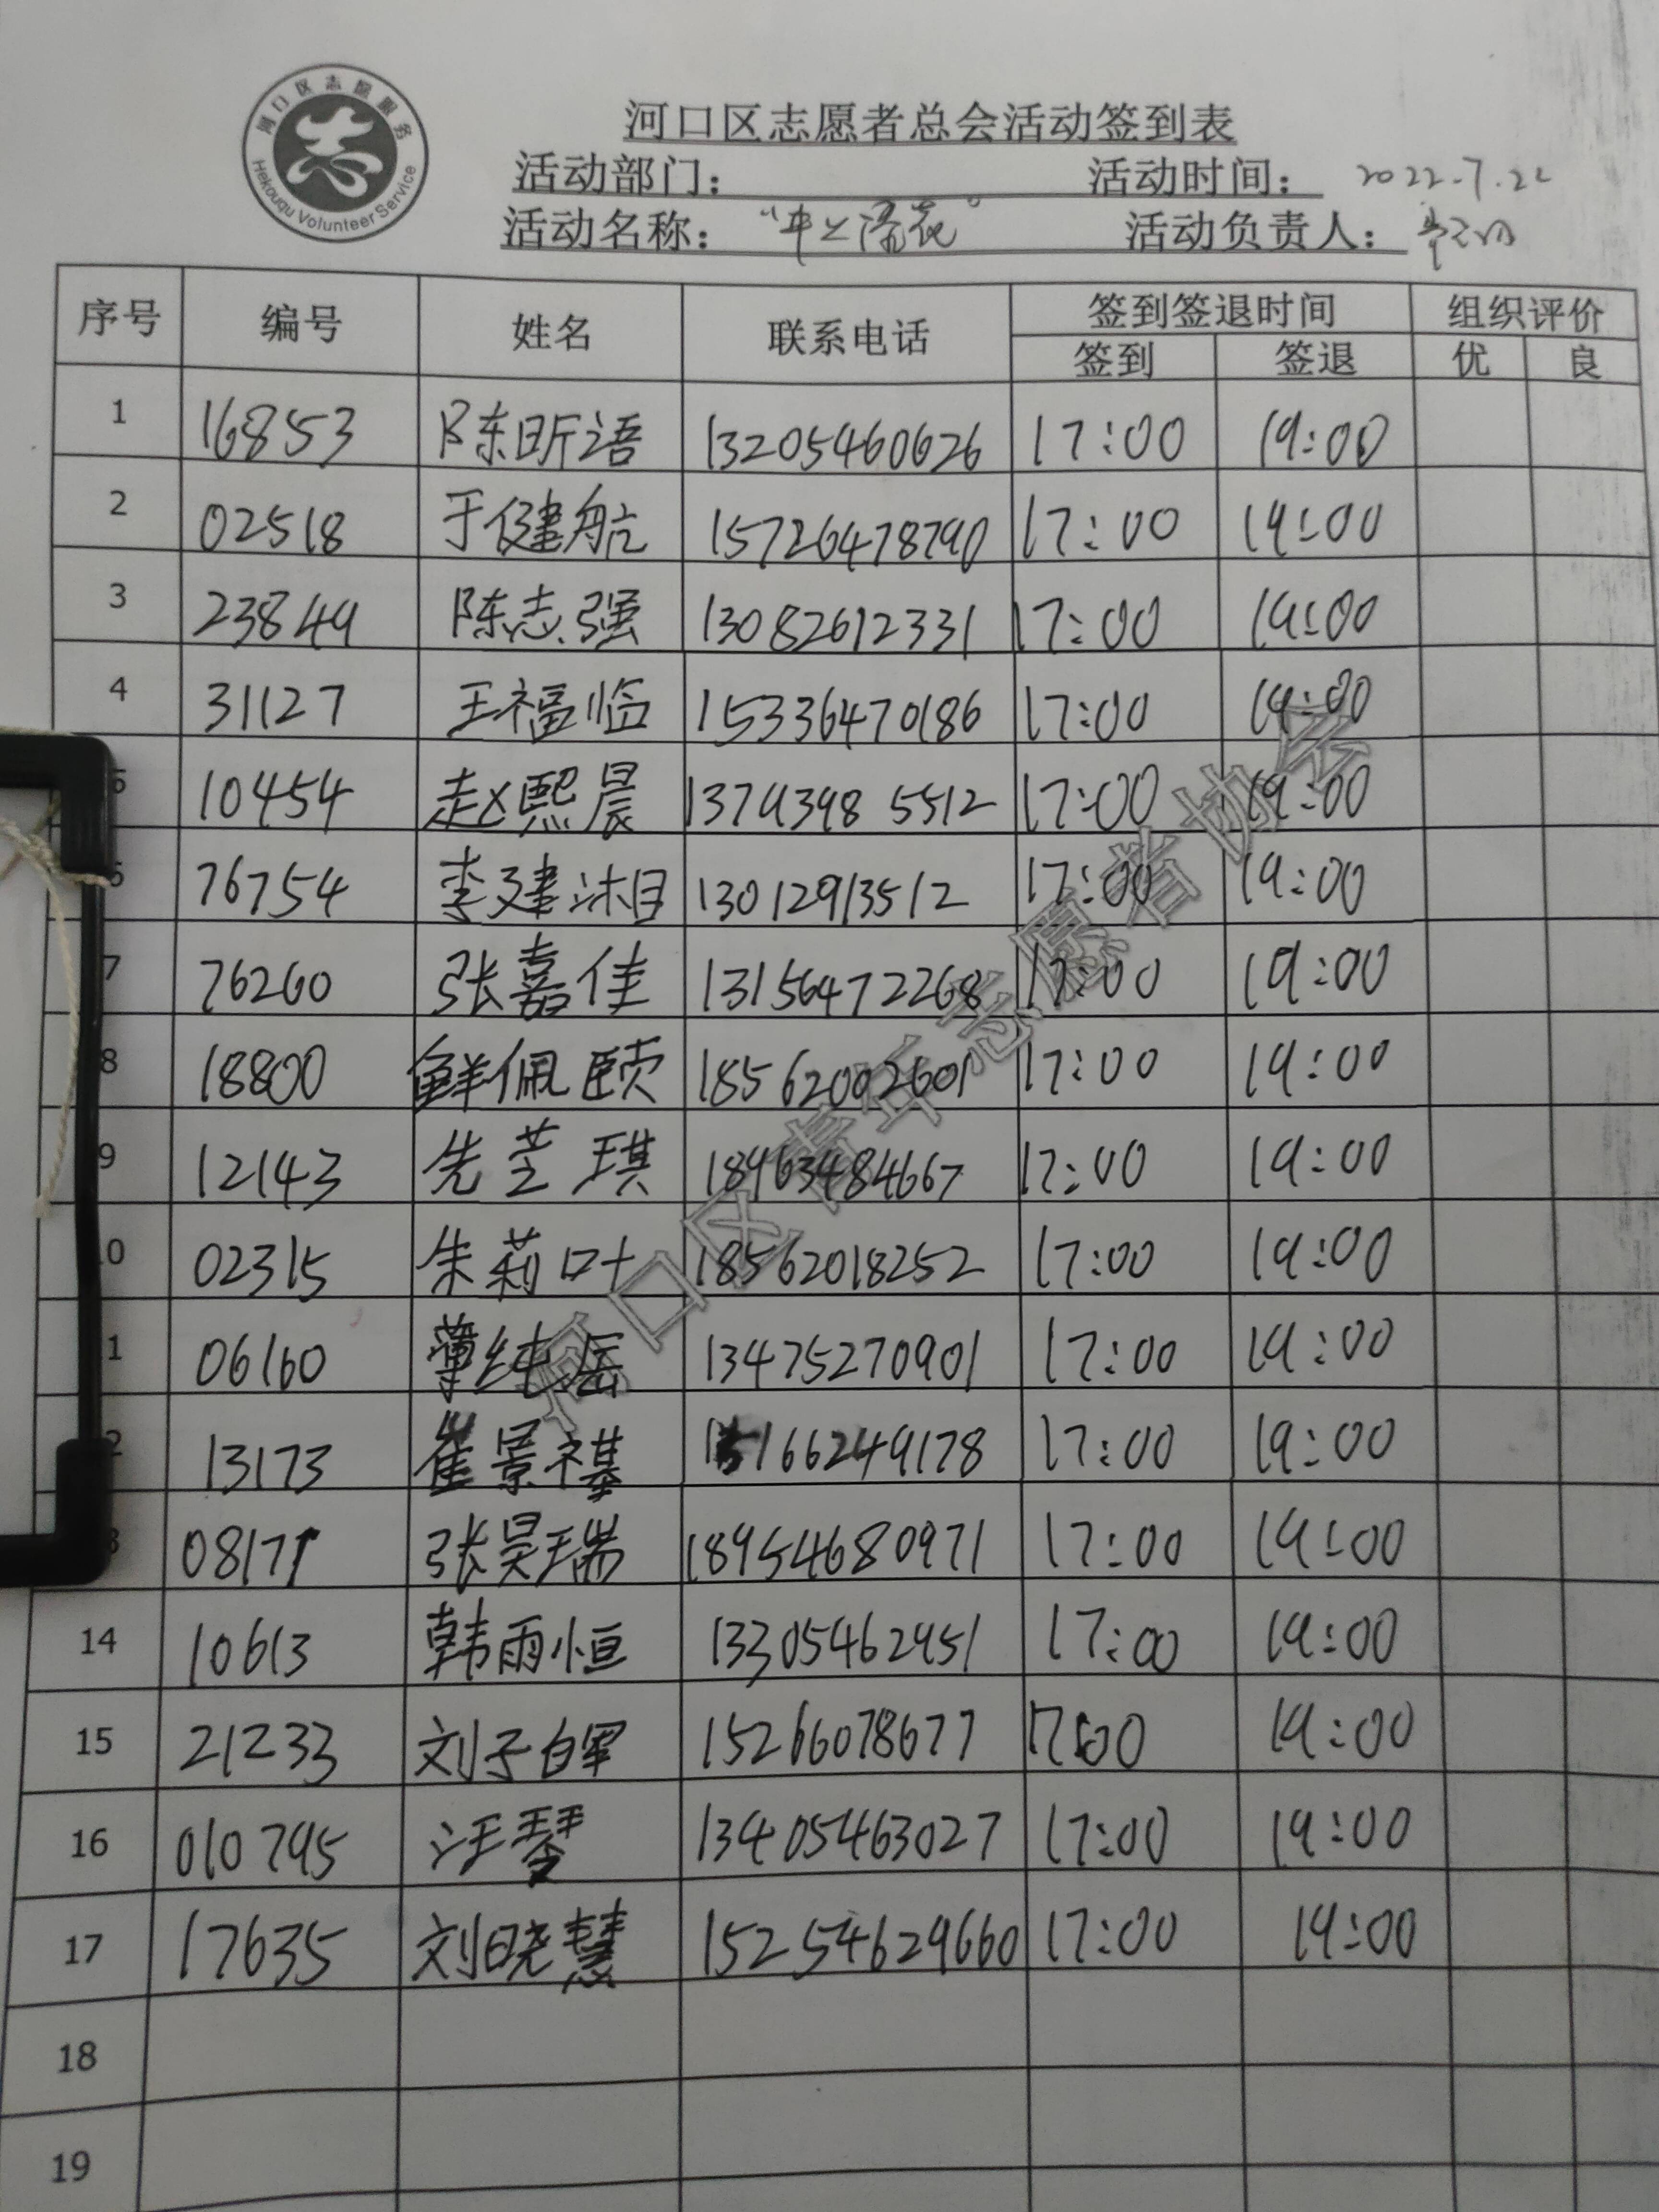 河口区志愿服务
Hekouqu Volunteer Service
河口区志愿者总会活动签到表
活动部门： 活动时间： 2022.7.22
活动名称： 活动负责人：
序号 编号 姓名 联系电话 签到签退时间 组织评价
签到 签退 优 良
1 16853 陈昕语 13205460626 17:00 19:00
2 02518 于健航 15726478790 17:00 19:00
3 23849 陈志强 13082612331 17:00 19:00
4 31127 王福临 15336470186 17:00 19:00
5 10454 赵熙晨 13793985512 17:00 19:00
6 76754 李建湘 13012913512 17:00 19:00
7 76260 张嘉佳 13156472268 17:00 19:00
8 18800 鲜佩颐 18562002601 17:00 19:00
9 12143 先芝琪 18963484667 17:00 19:00
10 02315 朱莉叶 18562018252 17:00 19:00
11 06160 薄纯岳 13475270901 17:00 19:00
12 13173 崔景祺 15166249178 17:00 19:00
13 08171 张昊瑞 18954680971 17:00 19:00
14 10613 韩雨恒 13305462951 17:00 19:00
15 21233 刘子皞 15266078677 17:00 19:00
16 010795 汪琴 13405463027 17:00 19:00
17 17635 刘晓慧 15254629660 17:00 19:00
18
19
河口区青年志愿者协会